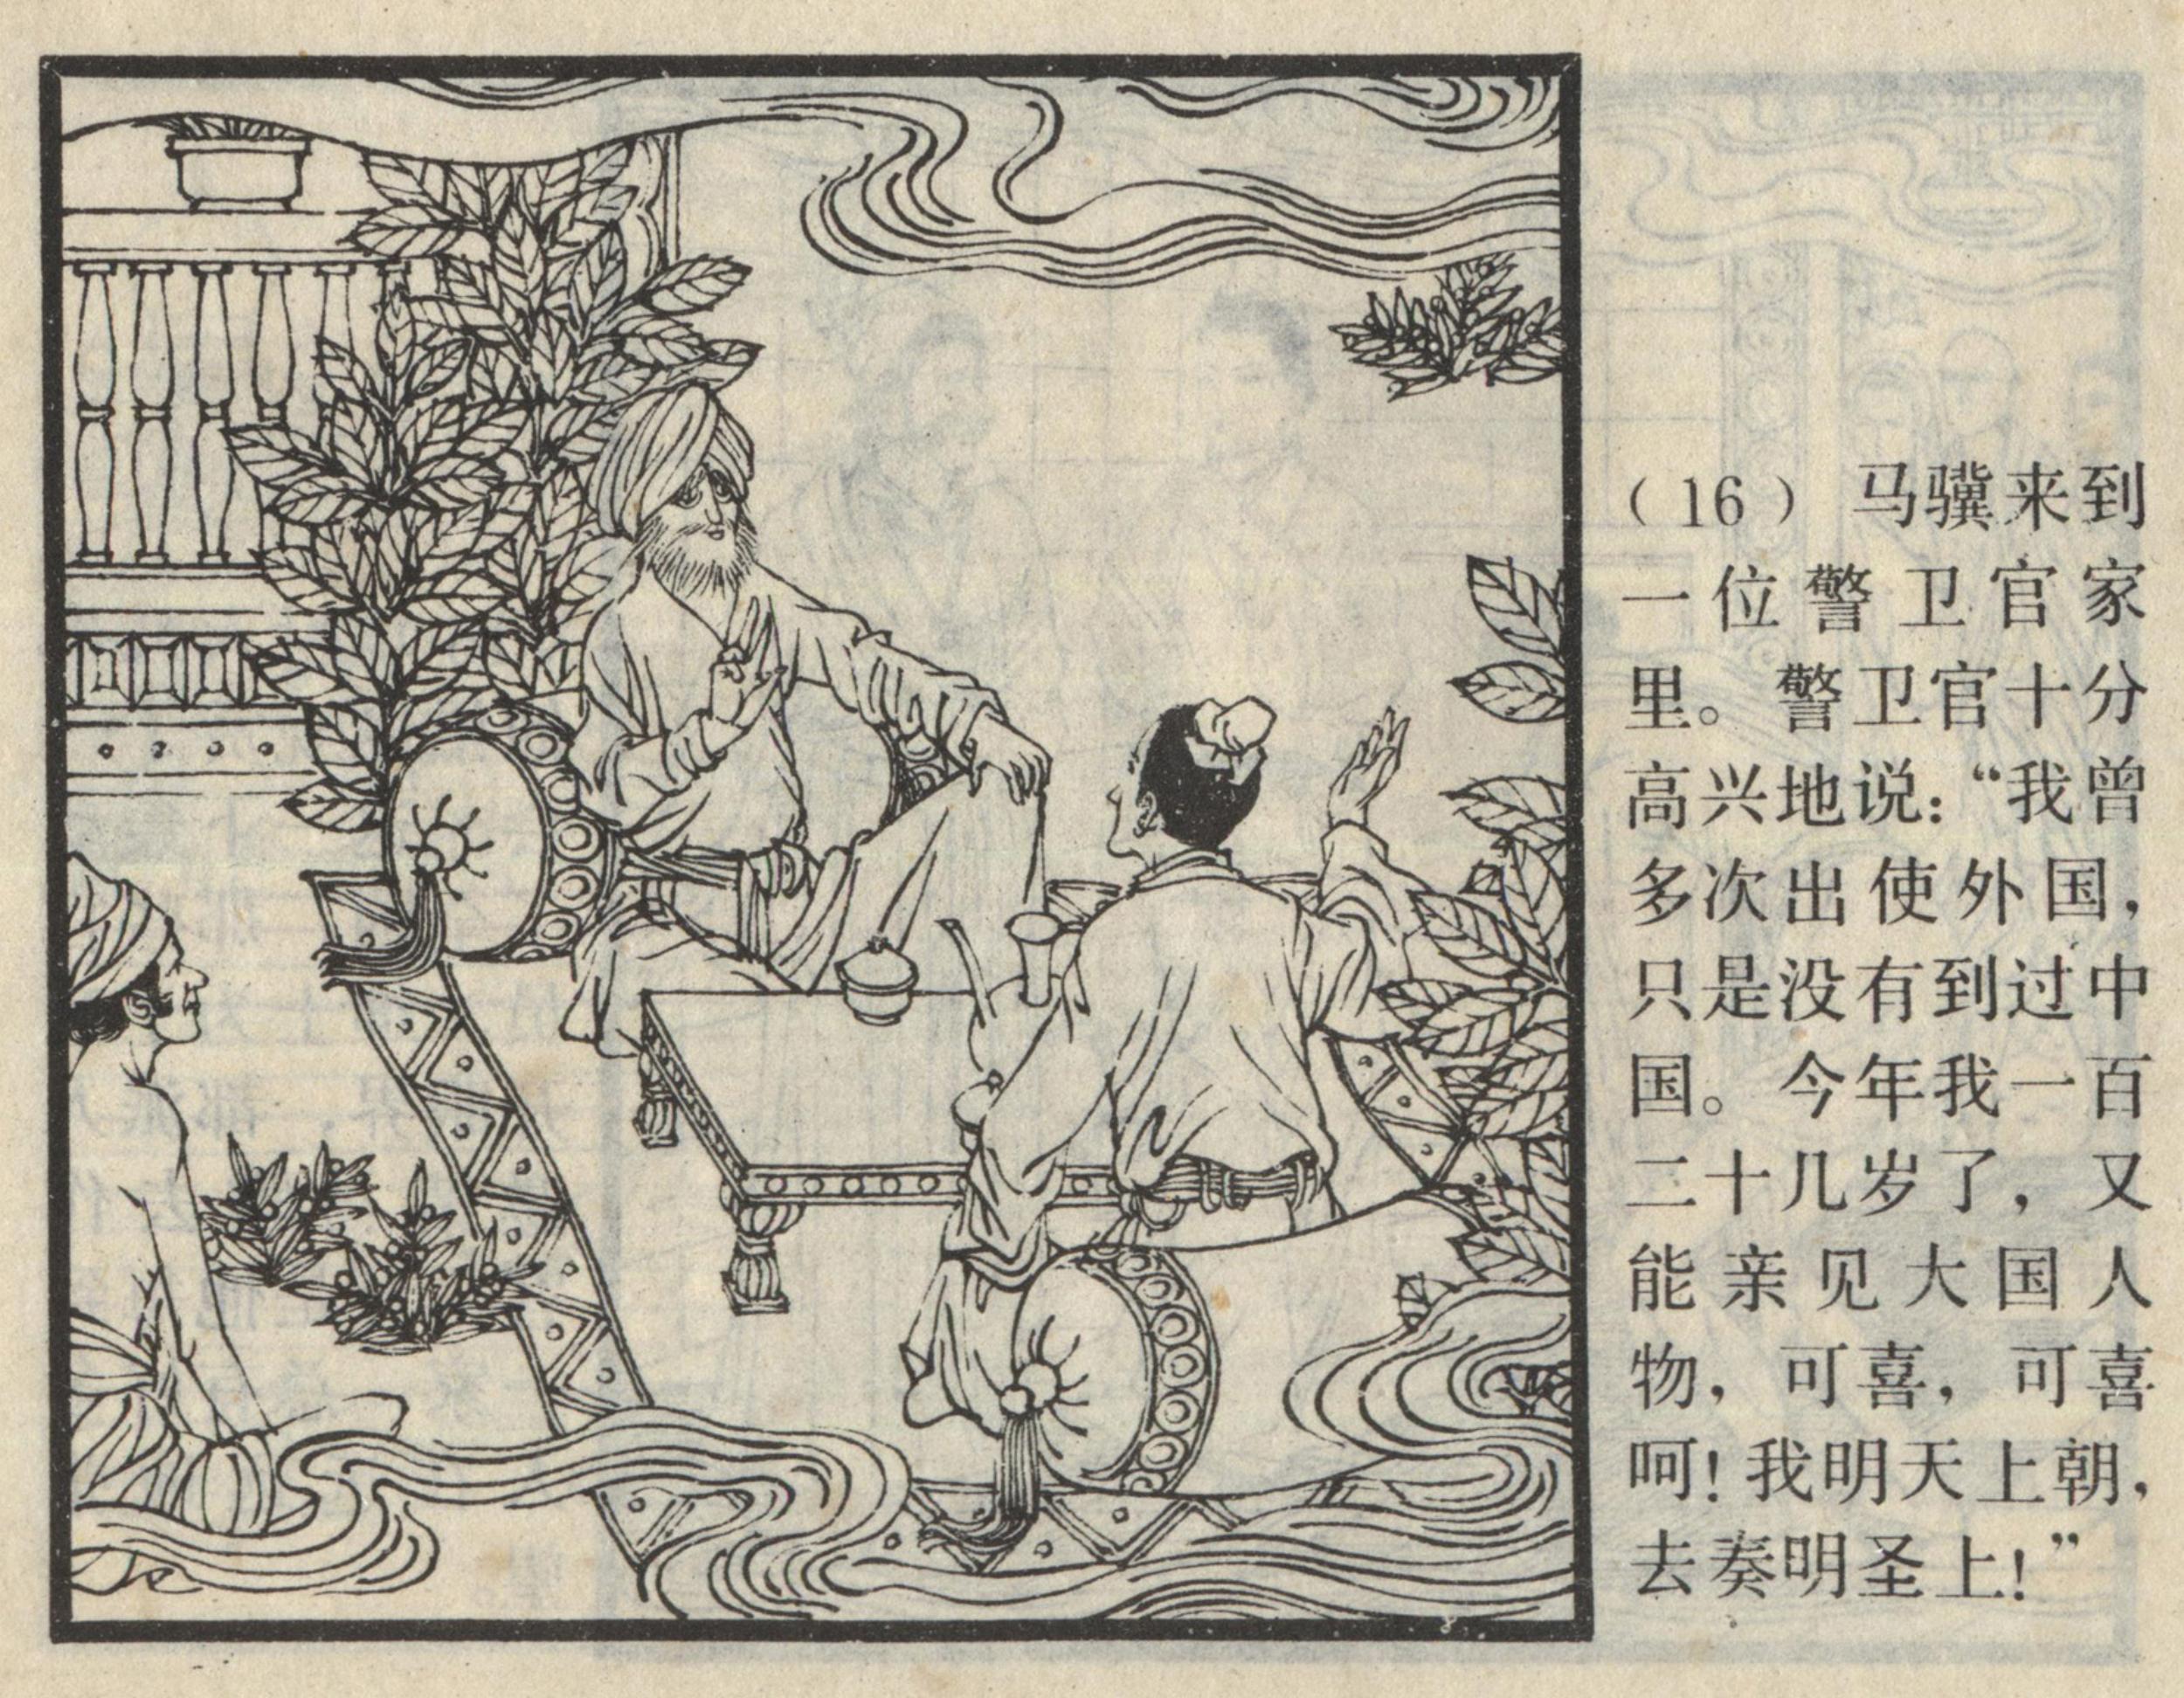 （16） 马骥来到
一位警卫官家
里。警卫官十分
高兴地说：“我曾
多次出使外国，
只是没有到过中
国。今年我一百
二十几岁了，又
能亲见大国人
物，可喜，可喜
呵！我明天上朝，
去奏明圣上！”